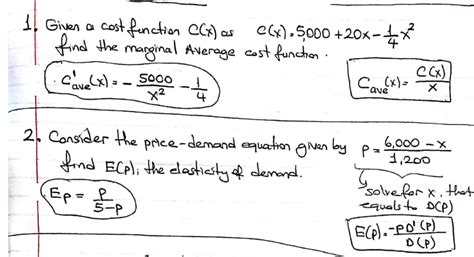 1. Given a cost function C(x) as C(x)=5,000+20x-1/4x²
find the marginal Average cost function.
C'ave(x)= - 5000/x² - 1/4
Cave(x)= C(x)/x
2. Consider the price-demand equation given by p= 6,000-x/1,200
find E(p), the elasticity of demand.
Ep = p/5-p
solve for x. that
equals to D(p)
E(p)= -pD'(p)/D(p)